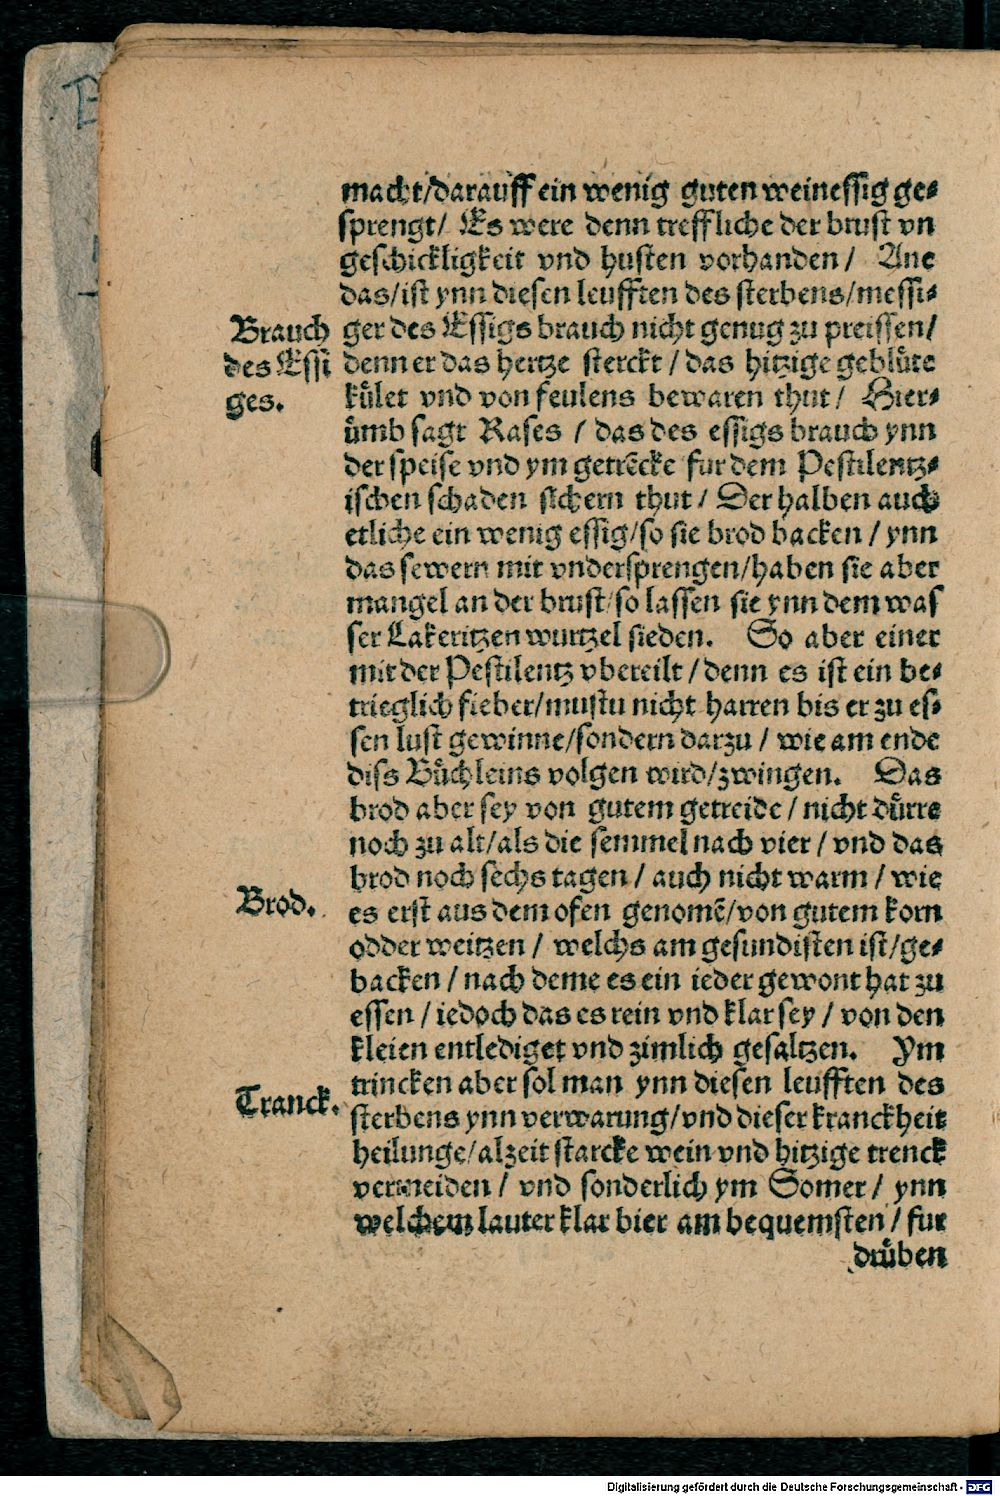 macht/darauff ein wenig guten weinessig ge⸗
sprengt/ Es were denn treffliche der brust vn
geschickligkeit vnd husten vorhanden/ Ane
das/ist ynn diesen leufften des sterbens/messi⸗
Brauch
des Essi
ges.
ger des Essigs brauch nicht genug zu preissen/
denn er das hertze sterckt/das hitzige geblüte
kület vnd von feulens bewaren thut/ Hier⸗
ümb sagt Rases/das des essigs brauch ynn
der speise vnd ym getrēcke fur dem Pestilentz⸗
ischen schaden sichern thut/Der halben auch
etliche ein wenig essig/so sie brod backen/ynn
das sewern mit vndersprengen/haben sie aber
mangel an der brust/so lassen sie ynn dem was
ser Lakeritzen wurtzel sieden. So aber einer
mit der Pestilentz vbereilt/denn es ist ein be⸗
trieglich fieber/mustu nicht harren bis er zu es⸗
sen lust gewinne/sondern darzu/wie am ende
diss Büchleins volgen wird/zwingen. Das
brod aber sey von gutem getreide/nicht dürre
noch zu alt/als die semmel nach vier/vnd das
brod noch sechs tagen/auch nicht warm/wie
Brod.
es erst aus dem ofen genomē/von gutem korn
odder weitzen/welchs am gesundisten ist/ge⸗
backen/nach deme es ein ieder gewont hat zu
essen/iedoch das es rein vnd klar sey/von den
kleien entlediget vnd zimlich gesaltzen. Ym
Tranck.
trincken aber sol man ynn diesen leufften des
sterbens ynn verwarung/vnd dieser kranckheit
heilunge/alzeit starcke wein vnd hitzige trenck
vermeiden/vnd sonderlich ym Somer/ynn
welchem lauter klar bier am bequemsten/fur
drüben
Digitalisierung gefördert durch die Deutsche Forschungsgemeinschaft - DFG